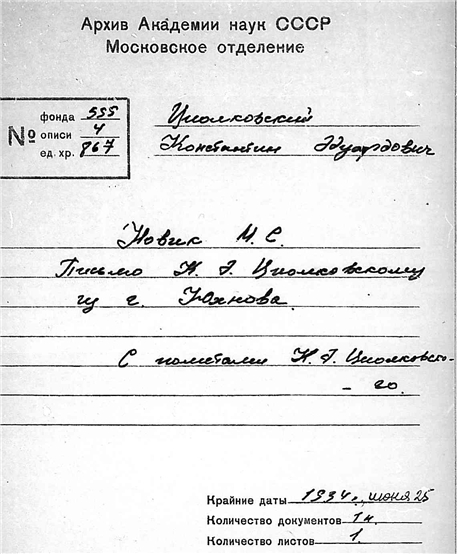 Архив Академии наук СССР
Московское отделение
№
фонда 555
описи 4
ед. хр. 867
Циолковский
Константин Эдуардович
Новик М. С.
Письмо К. Э. Циолковскому
из г.
С пометами К. Э. Циолковско-
го.
Крайние даты 1934 г., июня 25
Количество документов 1 к.
Количество листов 1.